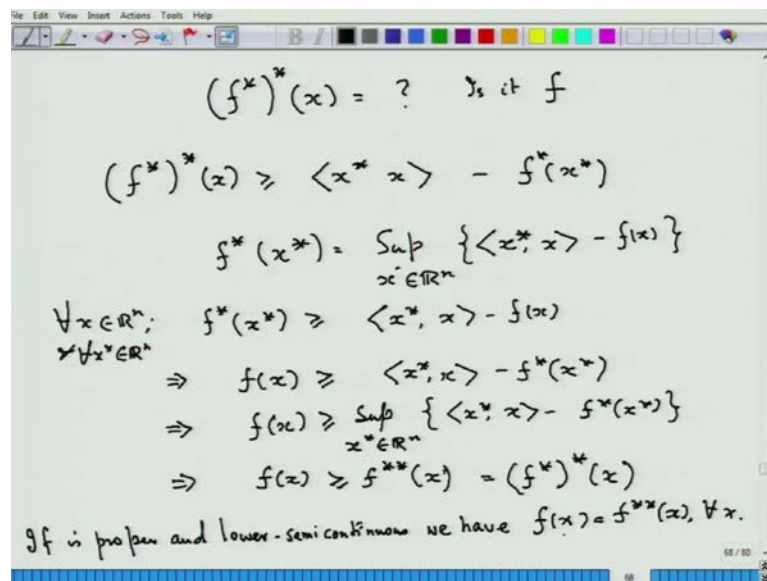 File Edit View Insert Actions Tools Help
B I
(f*)*(x) = ? Is it f
(f*)*(x) ⩾ ⟨x* x⟩ - f*(x*)
f*(x*) = Sup {⟨x*, x⟩ - f(x)}
x ∈ ℝⁿ
∀x ∈ ℝⁿ; f*(x*) ⩾ ⟨x*, x⟩ - f(x)
∀x* ∈ ℝⁿ
⇒ f(x) ⩾ ⟨x*, x⟩ - f*(x*)
⇒ f(x) ⩾ Sup {⟨x*, x⟩ - f*(x*)}
x* ∈ ℝⁿ
⇒ f(x) ⩾ f**(x) = (f*)*(x)
If is proper and lower-semicontinuous we have f(x) = f**(x), ∀ x.
68 / 80
68